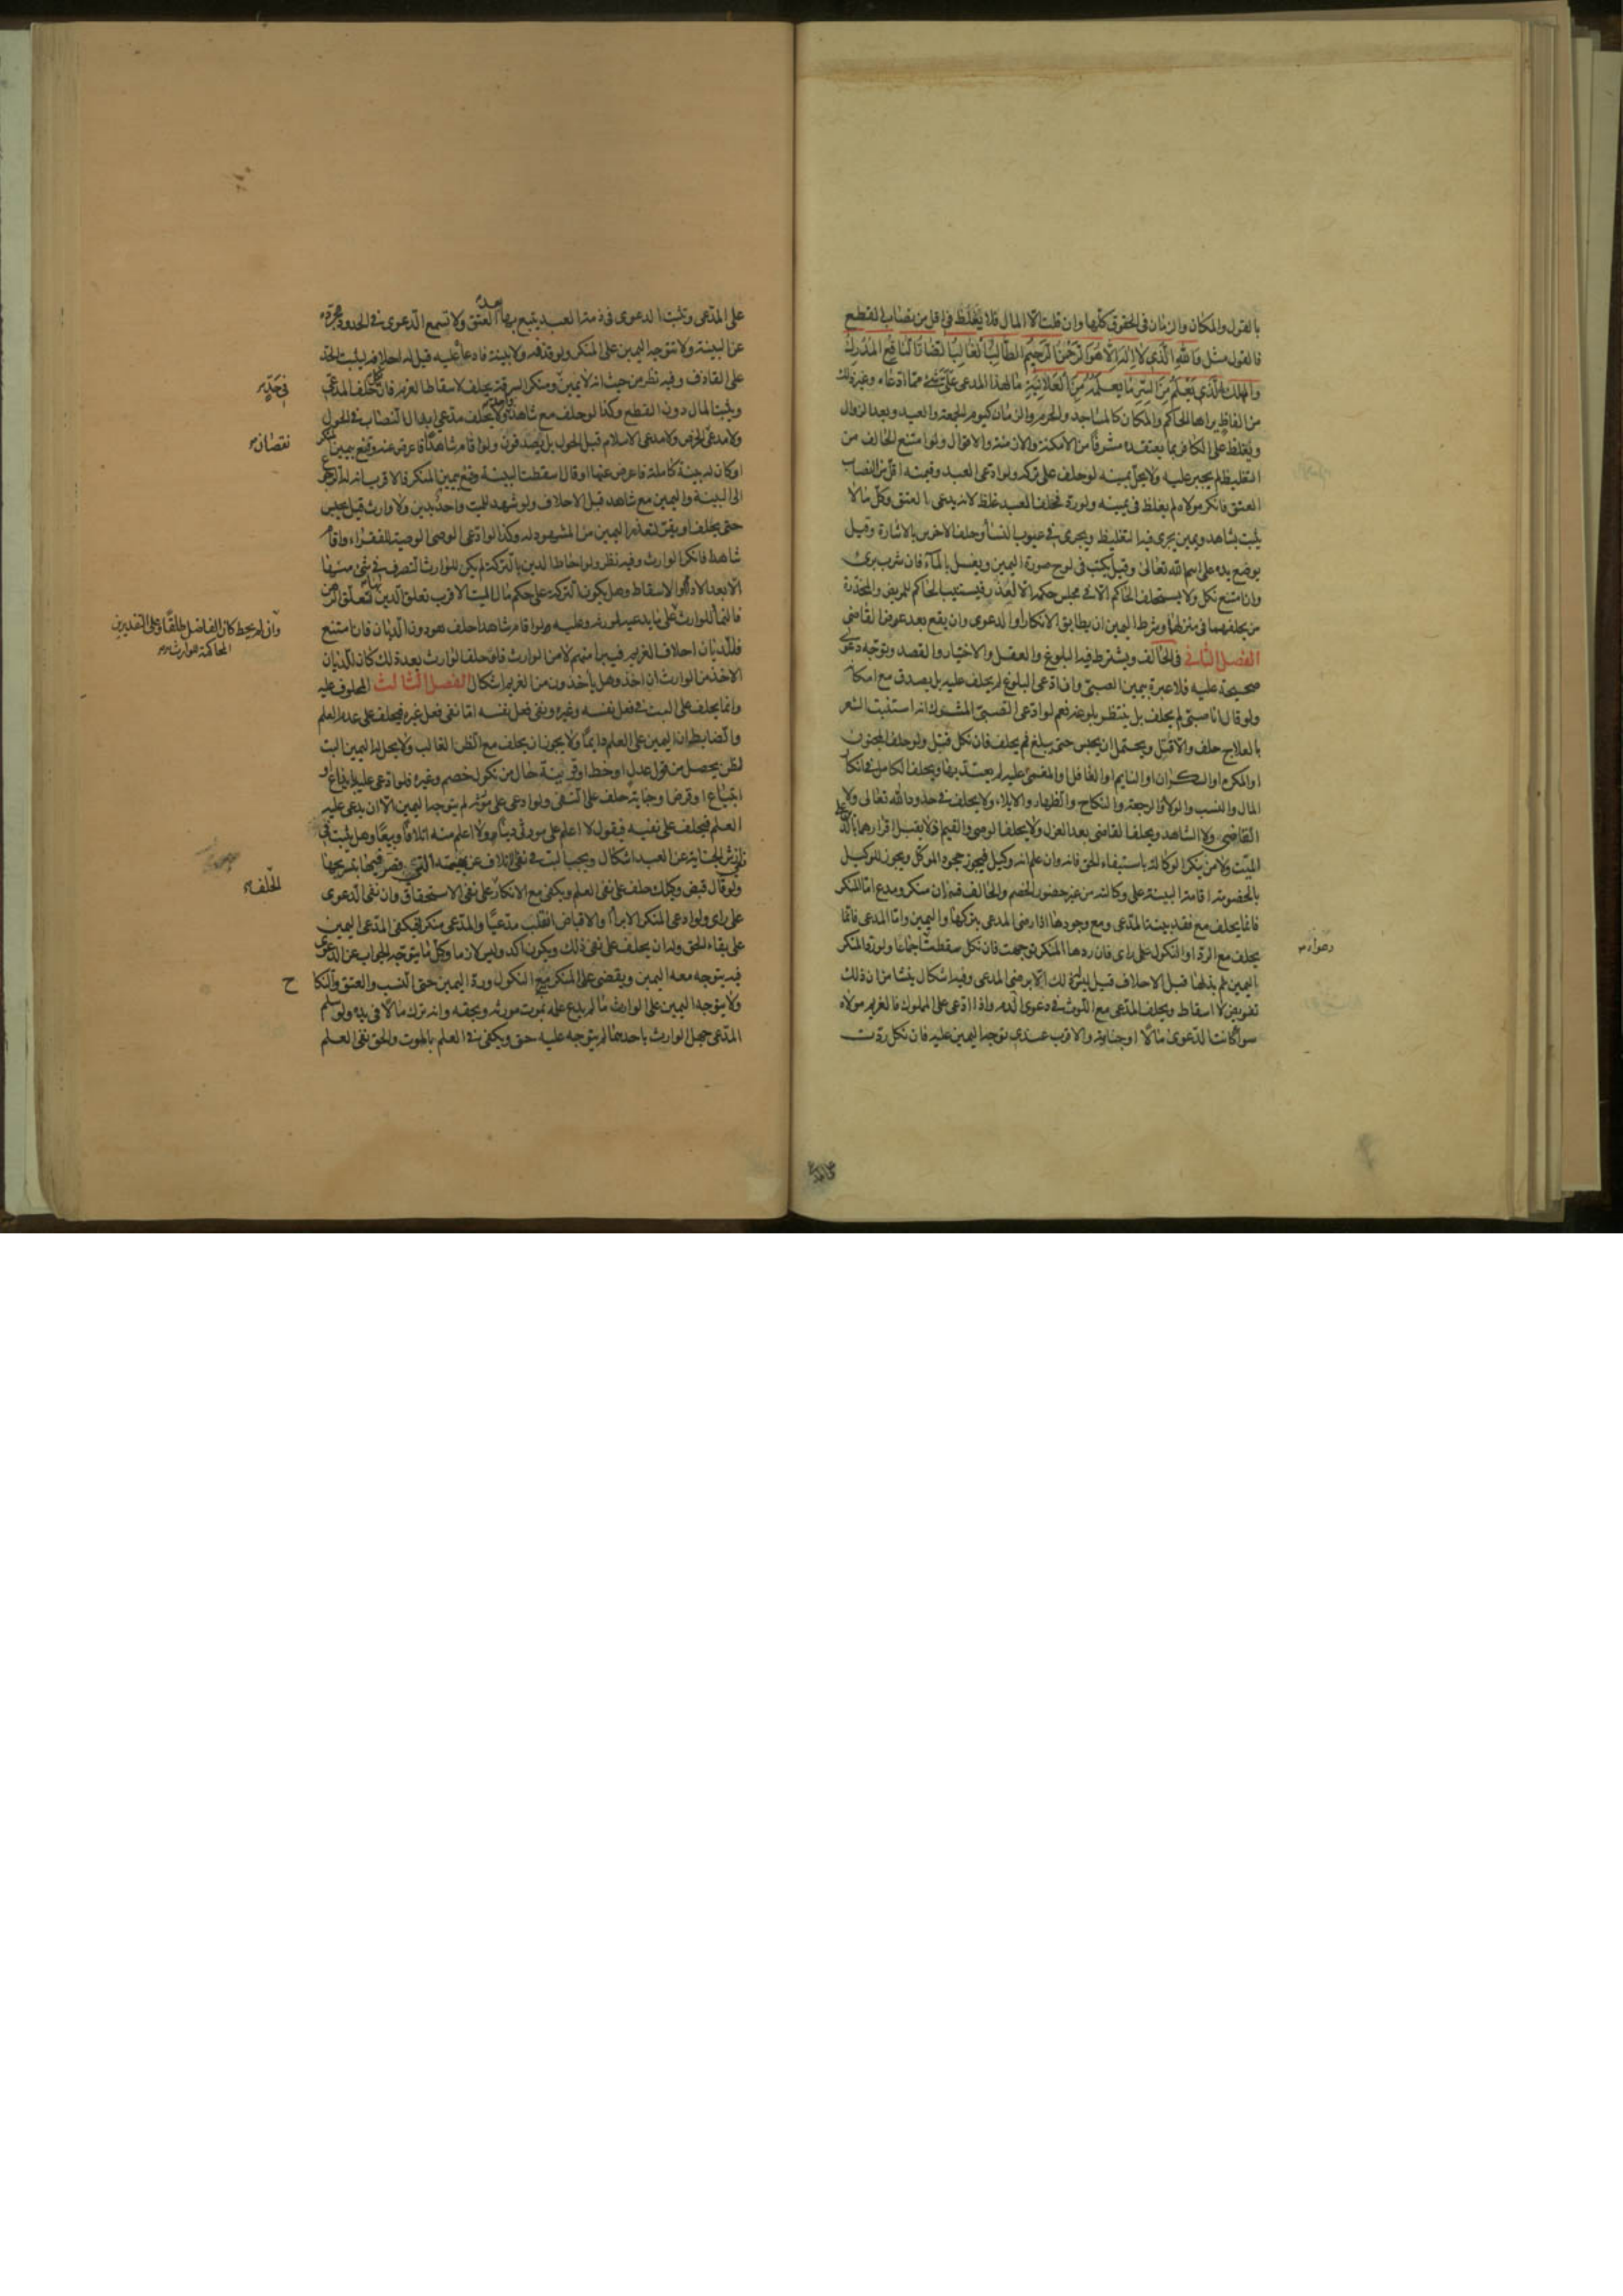 بالقول والمكان والزمان في الحقوق كلها وان قلت الا المال فلا يغلظ في اقل من نصاب القطع
فالقول مثل والله الذي لا اله الا هو الرحمن الرحيم الطالب الغالب الضار النافع المدرك
المهلك الذي يعلم من السر ما يعلمه من العلانية ما لهذا المدعى علي شئ مما ادعاه وغير ذلك
من الفاظ يراها الحاكم والمكان كالمساجد والحرم والزمان كيوم الجمعة والعيد وبعد الزوال
ويغلظ على الكافر بما يعتقده مشرفا من الامكنة والازمنة والاقوال ولو امتنع الحالف من
التغليظ لم يجبر عليه ولا يحل يمينه لو حلف على تركه ولو ادعى العبد وقيمته اقل من النصاب
العتق فانكر مولاه لم يغلظ في يمينه ولو رد فحلف العبد غلظ لانه يدعى العتق وكل ما لا
يثبت بشاهد ويمين يجرى فيه التغليظ ويجرى في عيوب النساء وحلف الاخرس بالاشارة وقيل
يوضع يده على اسم الله تعالى وقيل يكتب في لوح صورة اليمين ويغسل بالماء فان شرب برئ
وان امتنع نكل ولا يستحلف الحاكم الا في مجلس حكمه الا لعذر فيستنيب الحاكم للمريض والمخدرة
من يحلفهما في منزلهما وشرط اليمين ان يطابق الانكار او الدعوى وان يقع بعد عرض القاضى
الفصل الثاني في الحالف ويشترط فيه البلوغ والعقل والاختيار والقصد وتوجه دعوى
صحيحة عليه فلا عبرة بيمين الصبى وان ادعى البلوغ لم يحلف عليه بل يصدق مع امكانه
ولو قال انا صبى لم يحلف بل ينتظر بلوغه نعم لو ادعى الصبى المشرك انه استنبت الشعر
بالعلاج حلف والا قتل ويحتمل ان يحبس حتى يبلغ ثم يحلف فان نكل قتل ولو حلف المجنون
او المكره او السكران او النايم او الغافل او المغمى عليه لم يعتد بها ويحلف الكامل في انكار
المال والنسب والولاء والرجعة والنكاح والظهار والايلاء ولا يحلف في حدود الله تعالى ولا
القاضى ولا الشاهد ويحلف القاضى بعد العزل ولا يحلف الوصى والقيم فلا يقبل اقرارهما بالدين على
الميت ولا من ينكر الوكالة باستيفاء الحق فانه وان علم انه وكيل فيجوز جحود الموكل ويجوز للوكيل
بالخصومة اقامة البينة على وكالته من غير حضور الخصم والحالف قسمان منكر ومدع اما المنكر
فانما يحلف مع فقد بينة المدعى ومع وجودها اذا رضى المدعى بتركها واليمين واما المدعى فانما
يحلف مع الرد او النكول على راى فان ردها المنكر توجهت فان نكل سقطت اجماعا ولو رد المنكر
اليمين ثم بذلها قبل الاحلاف قيل ليس له ذلك الا برضى المدعى وفيه اشكال ينشا من ان ذلك
تفويض لا اسقاط ويحلف المدعى مع اللوث في دعوى الدم واذا ادعى على المملوك فالغريم مولاه
سوا كانت الدعوى مالا او جناية والاقرب عندى توجه اليمين عليه فان نكل ردت
دعواه
على المدعى ويثبت الدعوى في ذمة العبد يتبع بها بعد العتق ولا تسمع الدعوى في الحدود مجردة
عن البينة ولا تتوجه اليمين على المنكر ولو قذفه ولا بينة فادعاه عليه قيل له احلافه ليثبت الحد
على القاذف وفيه نظر من حيث انه لا يمين ومنكر السرقة يحلف لاسقاط الغرم فان نكل حلف المدعى
ويثبت المال دون القطع وكذا لو حلف مع شاهد ولا يحلف مدعى ابدال النصاب في الحول
ولا مدعى الخرص ولا مدعى الاسلام قبل الحول بل يصدقون ولو اقام شاهدا فاعرض عنه وقنع بيمين المنكر
او كان له بينة كاملة فاعرض عنها او قال اسقطت البينة وقنع بيمين المنكر فالاقرب ان له الرجوع
الى البينة واليمين مع شاهده قبل الاحلاف ولو شهد للميت واحد بدين ولا وارث قيل يحبس
حتى يحلف او يقر لتعذر اليمين من المشهود له وكذا لو ادعى الوصى الوصية للفقراء واقام
شاهدا فانكر الوارث وفيه نظر ولو احاط الدين بالتركة لم يكن للوارث التصرف في شئ منها
الا بعد الاداء او الاسقاط وهل يكون التركة على حكم مال الميت الاقرب تعلق الدين بها تعلق الرهن
فالنماء للوارث على ما يدعيه لمورثه وعليه ولو اقام شاهدا حلف هو دون الديان فان امتنع
فللديان احلاف الغريم فيبرا منهم لا من الوارث فان حلف الوارث بعد ذلك كان للديان
الاخذ من الوارث ان اخذ وهل ياخذون من الغريم اشكال الفصل الثالث المحلوف عليه
وانما يحلف على البت في فعل نفسه وغيره ونفى فعل نفسه اما نفى فعل غيره فيحلف على عدم العلم
والضابط ان اليمين على العلم دايما ولا يجوز ان يحلف مع الظن الغالب ولا يحل له اليمين البت
لظن يحصل من قول عدل او خط او قرينة حال من نكول خصم وغيره فلو ادعى عليه بابتياع او
اقتراض او جناية حلف على النفى ولو ادعى على مورثه لم يتوجه اليمين الا ان يدعى عليه
العلم فيحلف على نفيه فيقول لا اعلم على مورثى دينا ولا اعلم منه اتلافا وبيعا وهل يثبت في
نفى ارش الجناية عن العبد اشكال ويجب البت في نفى اتلاف عن بهيمته التى قصر فيها بتسريحها
ولو قال قبض وكيلك حلف على نفى العلم ويكفى مع الانكار على نفى الاستحقاق وان نفى الدعوى
على راى ولو ادعى المنكر الابراء والاقباض انقلب مدعيا والمدعى منكرا فيكفى المدعى اليمين
على بقاء الحق وله ان يحلف على نفى ذلك ويكون آكد وليس لازما وكل ما يتوجه الجواب عن الدعوى
فيه يتوجه معه اليمين ويقضى على المنكر مع النكول ورد اليمين حتى النسب والعتق والنكاح
ولا يتوجه اليمين على الوارث ما لم يدع علمه بموت مورثه وبحقه وانه ترك مالا في يده ولو سلم
المدعى جهل الوارث باحدهما لم يتوجه عليه حق ويكفى في العلم بالموت والحق نفى العلم
نقصانه
وان لم يحط كان الفاضل طلقا وعلى التقديرين
المحاكمة للوارث
الحلف